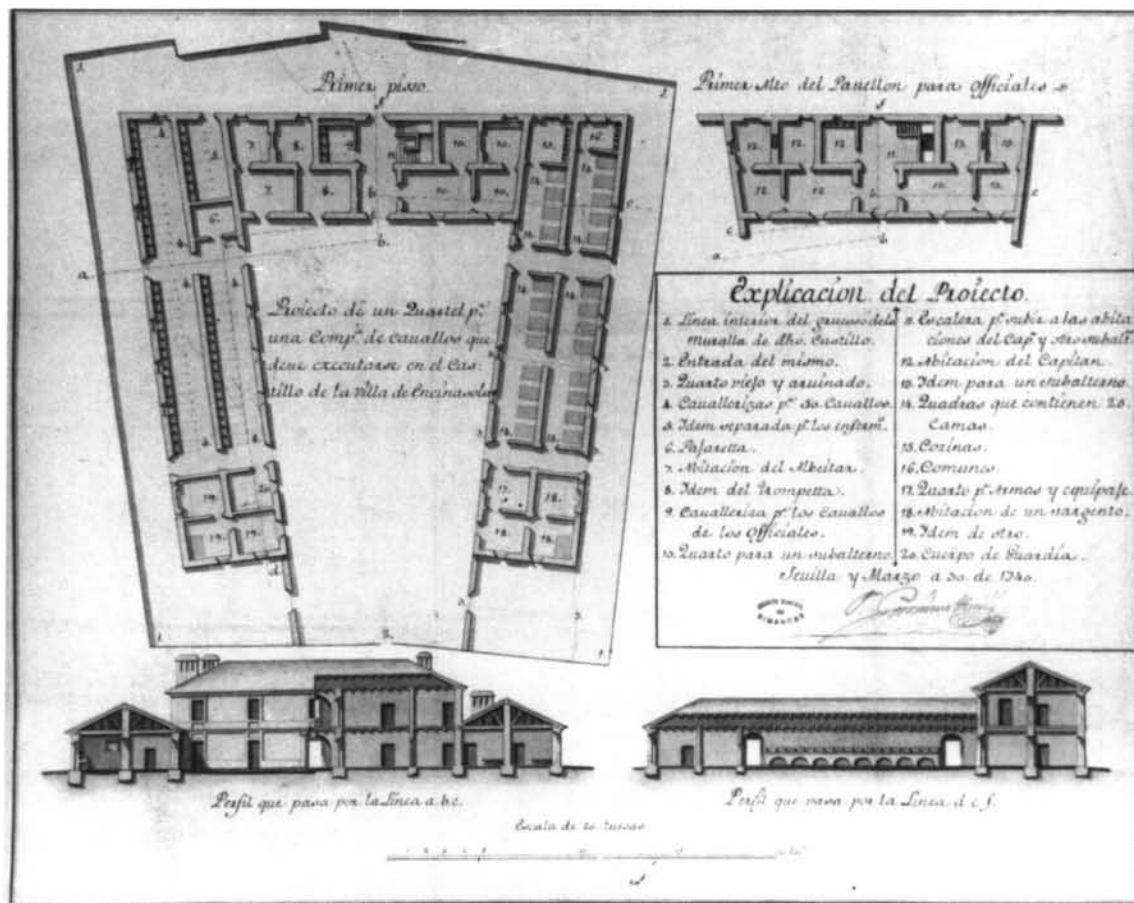 Primer pisso.
Primer Alto del Pavellon para Officiales
Proiecto de un Quartel pª.
una Compª. de cavallos que
deve executarse en el Cas-
tillo de la Villa de Encinasola
Explicacion del Proiecto.
1. Linea interior del gruesso dela
muralla de dho. Castillo.
2. Entrada del mismo.
3. Quarto viejo y aruinado.
4. Cavallerizas pª. 50. Cavallos.
5. Idem separada pª. los enferm.
6. Pajaretta.
7. Abitacion del Albeitar.
8. Idem del Trompetta.
9. Cavalleriza pª. los Cavallos
de los Officiales.
10. Quarto para un subalterno.
11. Escalera pª. subir a las abita
ciones del Capⁿ. y otro subaltº.
12. Abitacion del Capitan.
13. Idem para un subalterno.
14. Quadras que contienen 28.
Camas.
15. Cozinas.
16. Comunes.
17. Quarto pª. Armas y equipaje.
18. Abitacion de un sargento.
19. Idem de otro.
20. Cuerpo de Guardia.
Sevilla y Marzo a 30. de 1740.
Perfil que pasa por la Linea a.b.c.
Perfil que pasa por la Linea d.e.f.
Escala de 10 tuesas